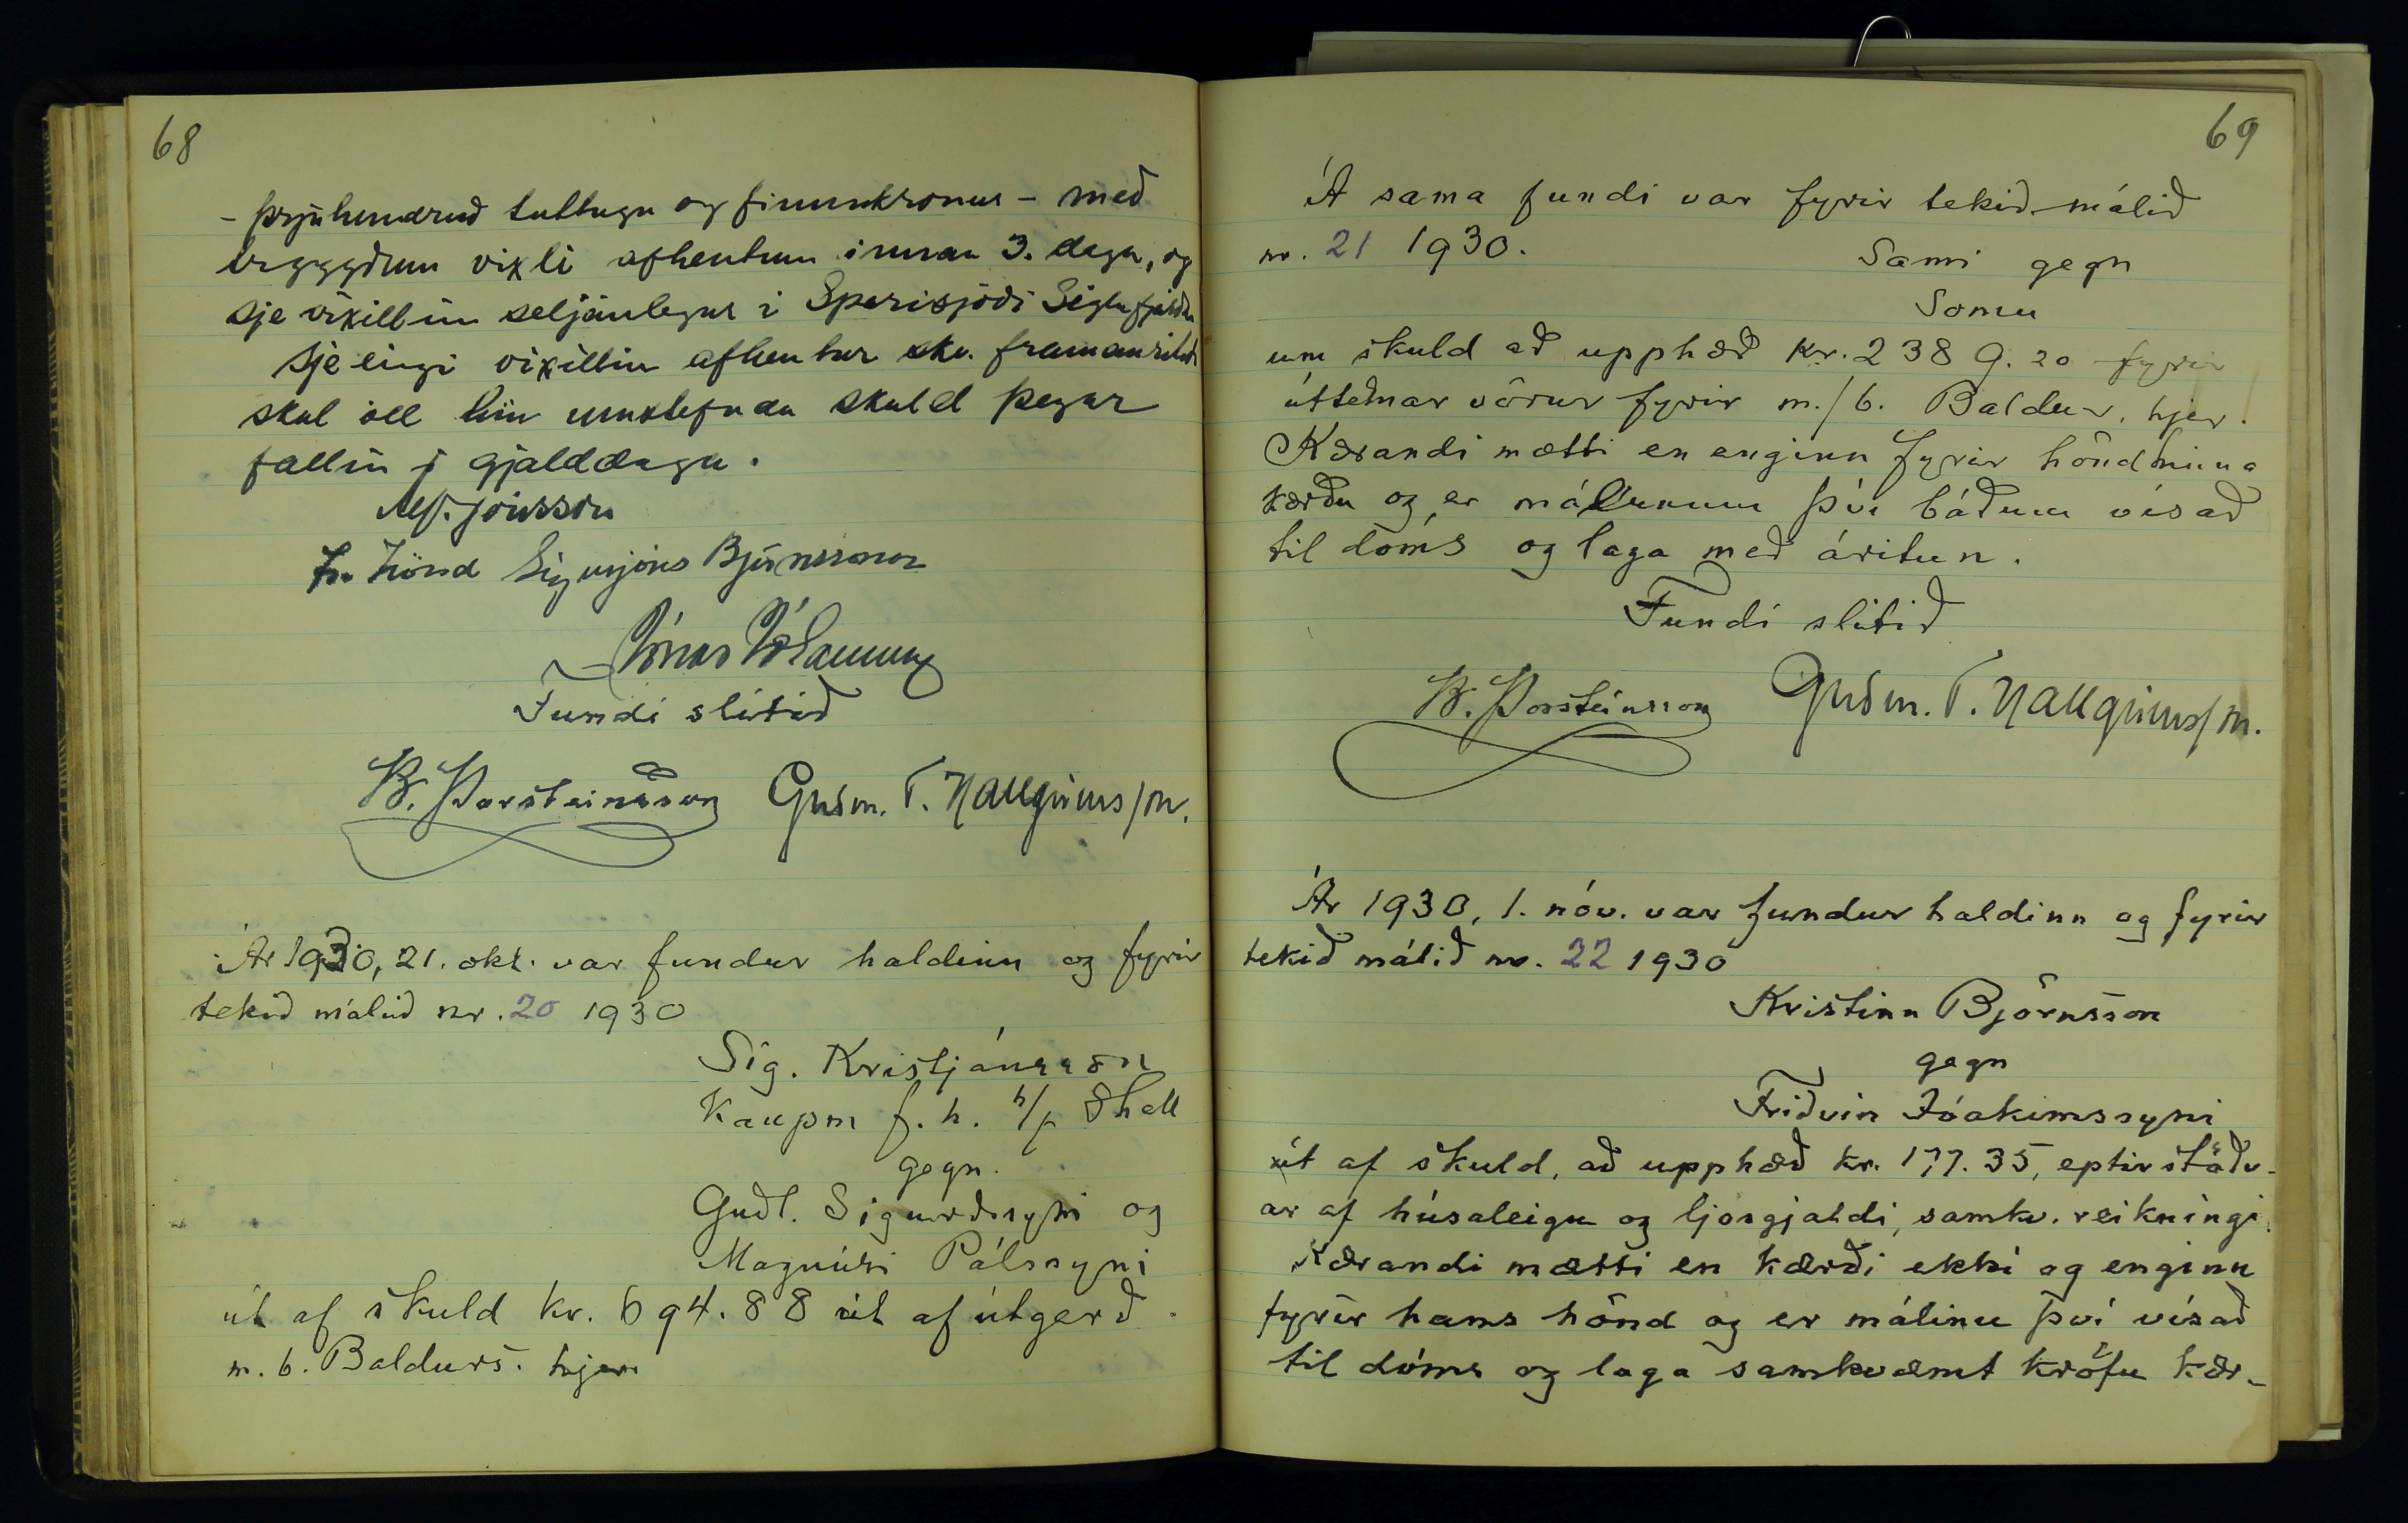 68
- þrjúhundruð tuttugu og fimmkrónur - með
tryggðum vixli afhentum innan 3. daga, og
sje víxillin seljanlegur i Sparisjóði Siglufjarðar
sje eigi vixillin afhentur skv. framanrituðu
skal öll hin umstefnda skuld þegar
fallin í gjalddaga.
Alf. Jónsson
fr. hönd Sigurjóns Björnssonar
Jónas Jóhannsson
Fundi slitið
B. Þorsteinsson Guðm. T. Hallgrímss/on.
Ár 1930, 21. okt. var fundur haldinn og fyrir
tekið málið nr. 20 1930
Sig. Kristjánsson
Kaupm f. h. h/f Shell
gegn.
Guðl. Sigurðssyni og
Magnúsi Pálssyni
út af skuld kr. 694.88 út af útgerð
m. b. Baldurs. hjer.
69
Á sama fundi var fyrir tekið málið
nr. 21 1930.
Sami gegn
Sömu
um skuld að upphæð kr. 2389.20 fyrir
útteknar vörur fyrir m./b. Baldur, hjer.
Kærandi mætti en enginn fyrir hönd hinna
kærðu og er málunum því báðum vísað
til dóms og laga með áritun.
Fundi slitið
B. Þorsteinsson Guðm. T. Hallgrímss/on.
Ár 1930, 1. nóv. var fundur haldinn og fyrir
tekið málið nr. 22 1930
Kristinn Björnsson
gegn
Friðvin Jóakimssyni
út af skuld, að upphæð kr. 177.35, eptirstöðv-
ar af húsaleigu og ljósgjaldi, samkv. reikningi.
Kærandi mætti en kærði ekki og enginn
fyrir hans hönd og er málinu því vísað
til dóms og laga samkvæmt kröfu kær-